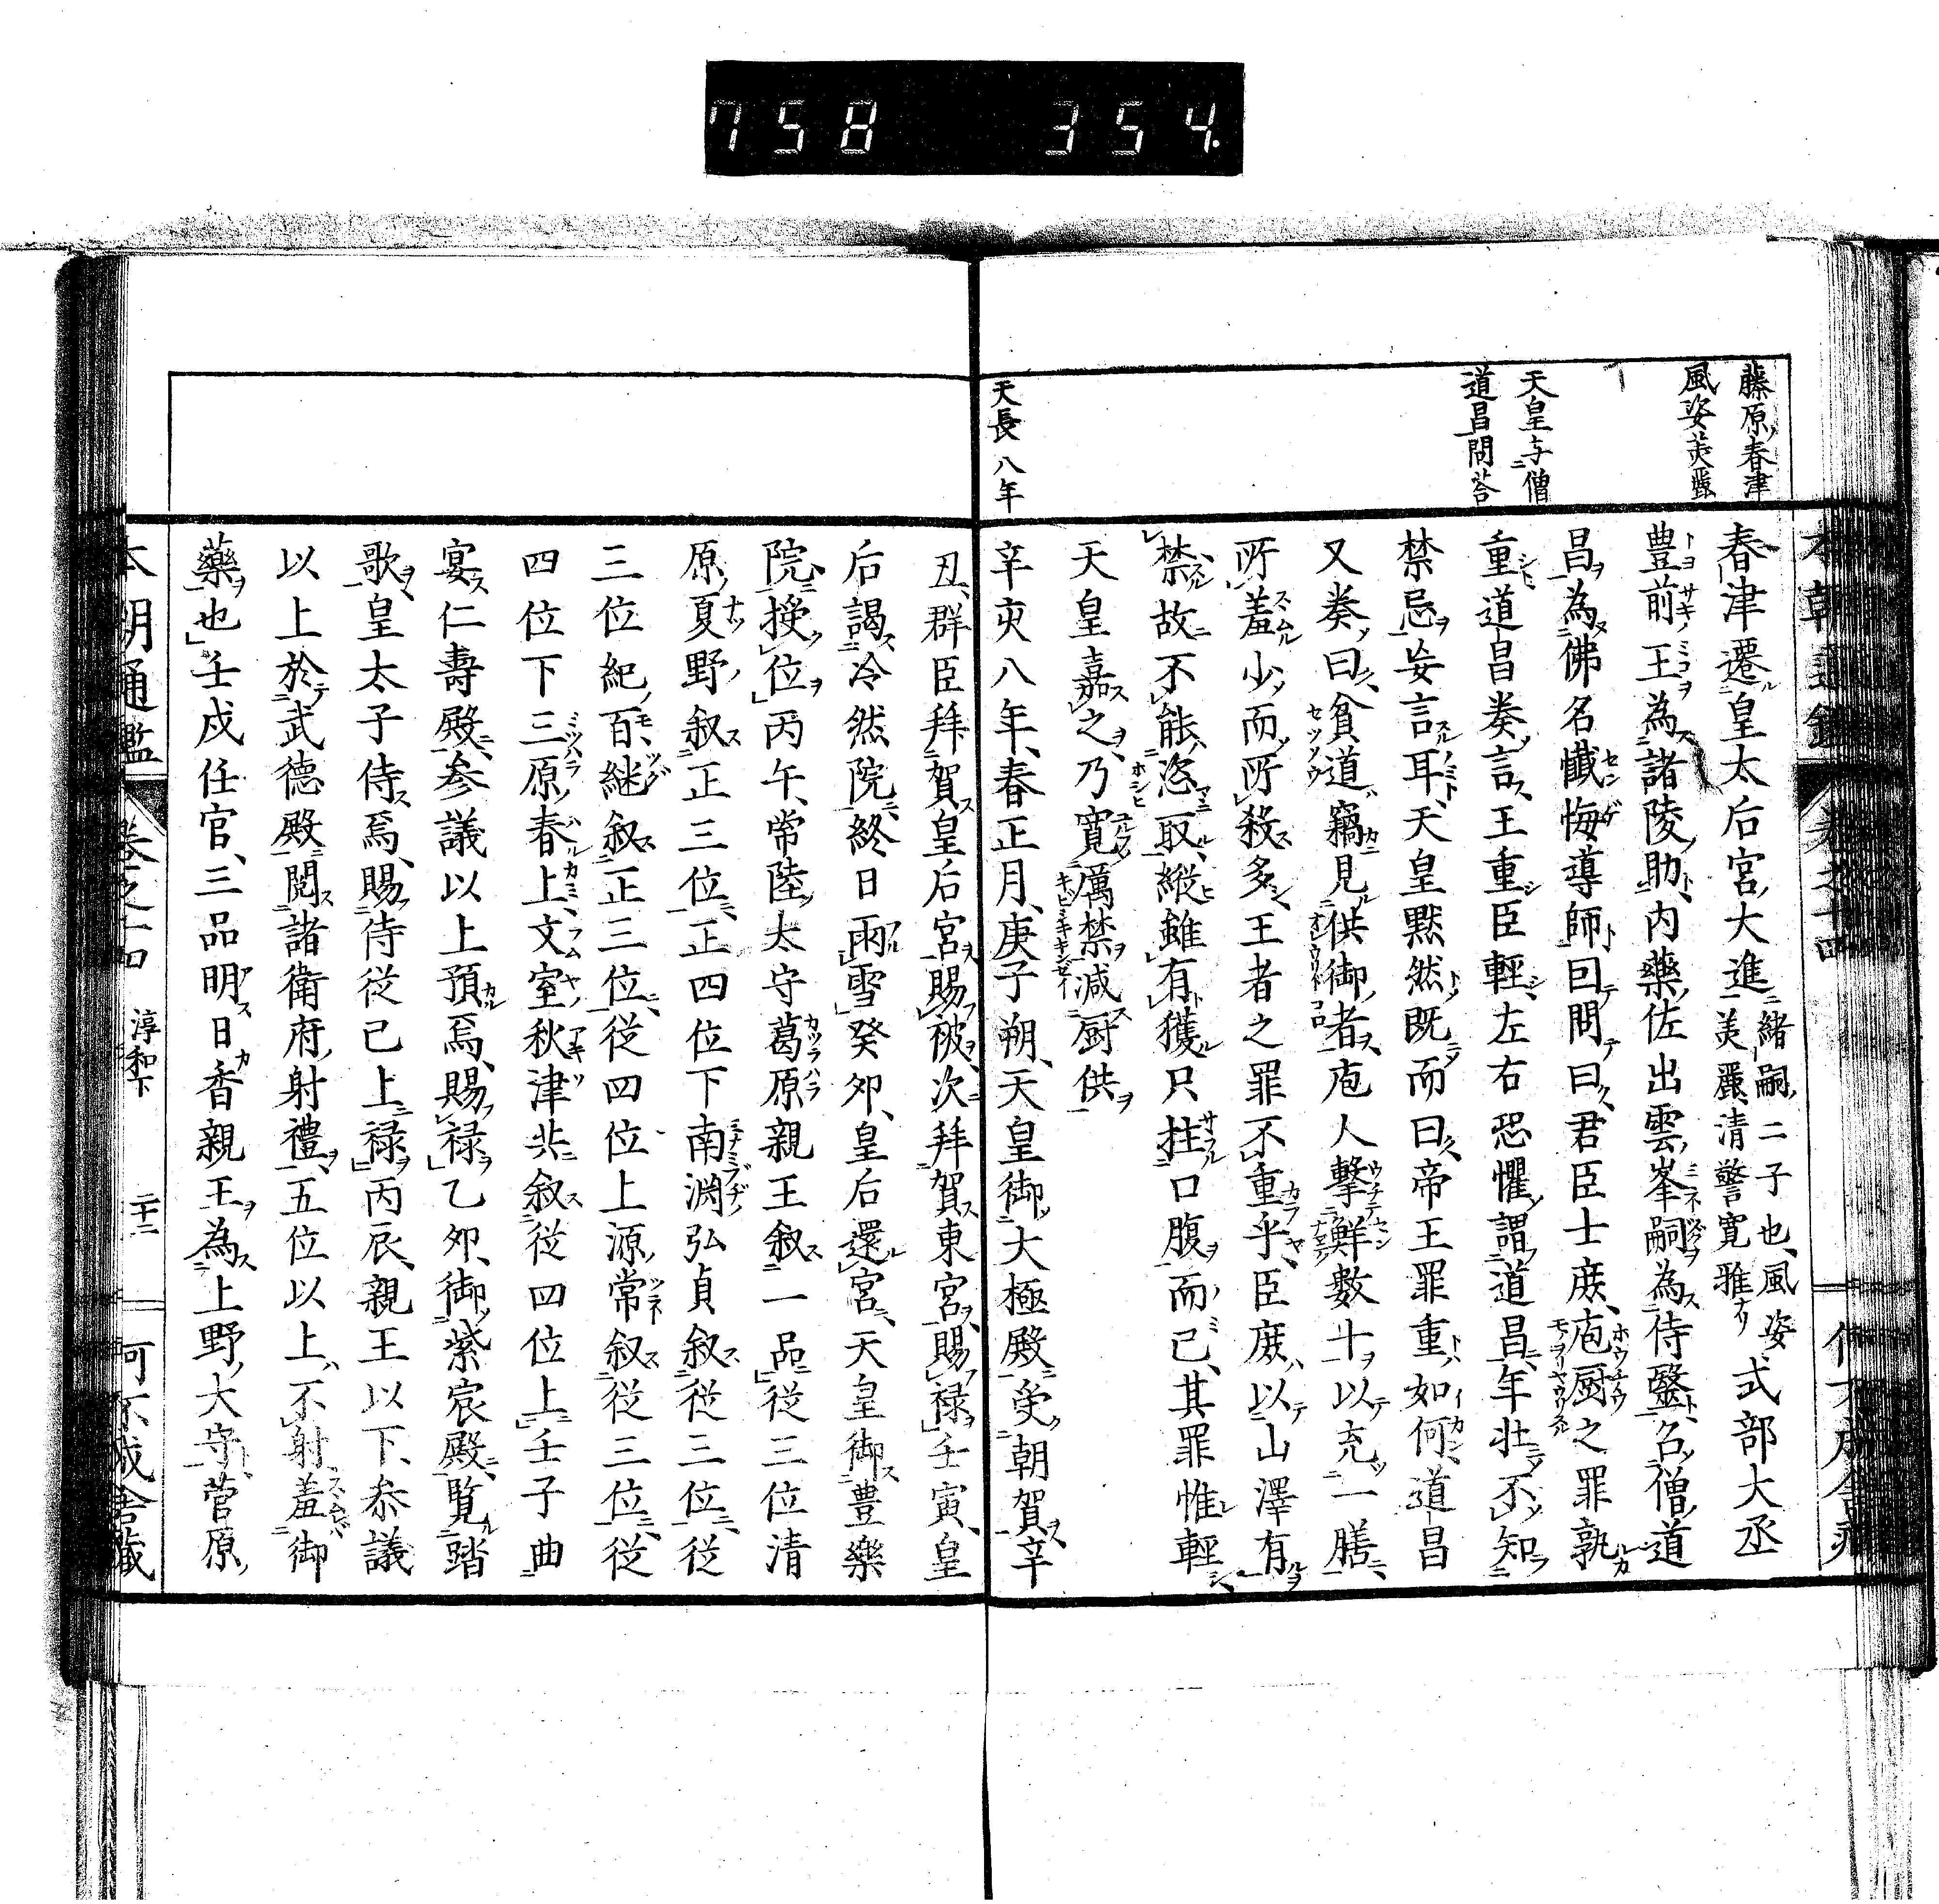 758 354.
藤原春津
風姿美麗
天皇与僧
道昌問荅
春津遷皇太后宮大進緒嗣二子也、風姿美麗、清警寛雅式部大丞
豊前王為諸陵助、内藥佐出雲峯嗣為侍醫、名僧道
昌為佛名懺悔導師、囙問曰、君臣士庶、庖厨之罪孰
重、道昌奏言、王重臣輕、左右恐懼、謂道昌年壮、不知
禁忌妄言耳、天皇黙然、既而曰、帝王罪重如何、道昌
又奏曰、貧道竊見供御者、庖人撃鮮數十以充一膳、
所羞少而所殺多、王者之罪不重乎、臣庶以山澤有
禁故、不能恣取、縱雖有獲只拄口腹而已、其罪惟輕
天皇嘉之、乃寛厲禁減厨供
天長八年
辛亥八年、春正月、庚子朔、天皇御大極殿受朝賀、辛
丑、群臣拜賀皇后宮賜被、次拜賀東宮、賜禄、壬寅、皇
后謁冷然院、終日雨雪、癸卯、皇后還宮、天皇御豊樂
院授位、丙午、常陸太守葛原親王叙一品、従三位清
原夏野叙正三位、正四位下南淵弘貞叙従三位、従
三位紀百継叙正三位、従四位上源常叙従三位、従
四位下三原春上、文室秋津共叙従四位上、壬子曲
宴仁壽殿、参議以上預焉、賜禄、乙卯、御紫宸殿覧踏
歌、皇太子侍焉、賜侍従已上禄、丙辰、親王以下、叅議
以上於武德殿閲諸衛府射禮、五位以上不射羞御
藥也、壬戌任官、三品明日香親王為上野大守、菅原
本朝通鑑 巻之十四 淳和下 二十二 何不成舎藏